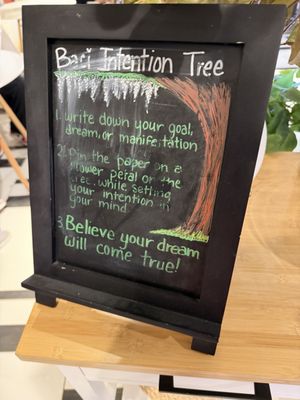 Bari Intention Tree
1. write down your goal,
dream, or manifestation
2. Pin the paper on a
flower petal or the
tree, while setting
your intention in
your mind
3. Believe your dream
will come true!